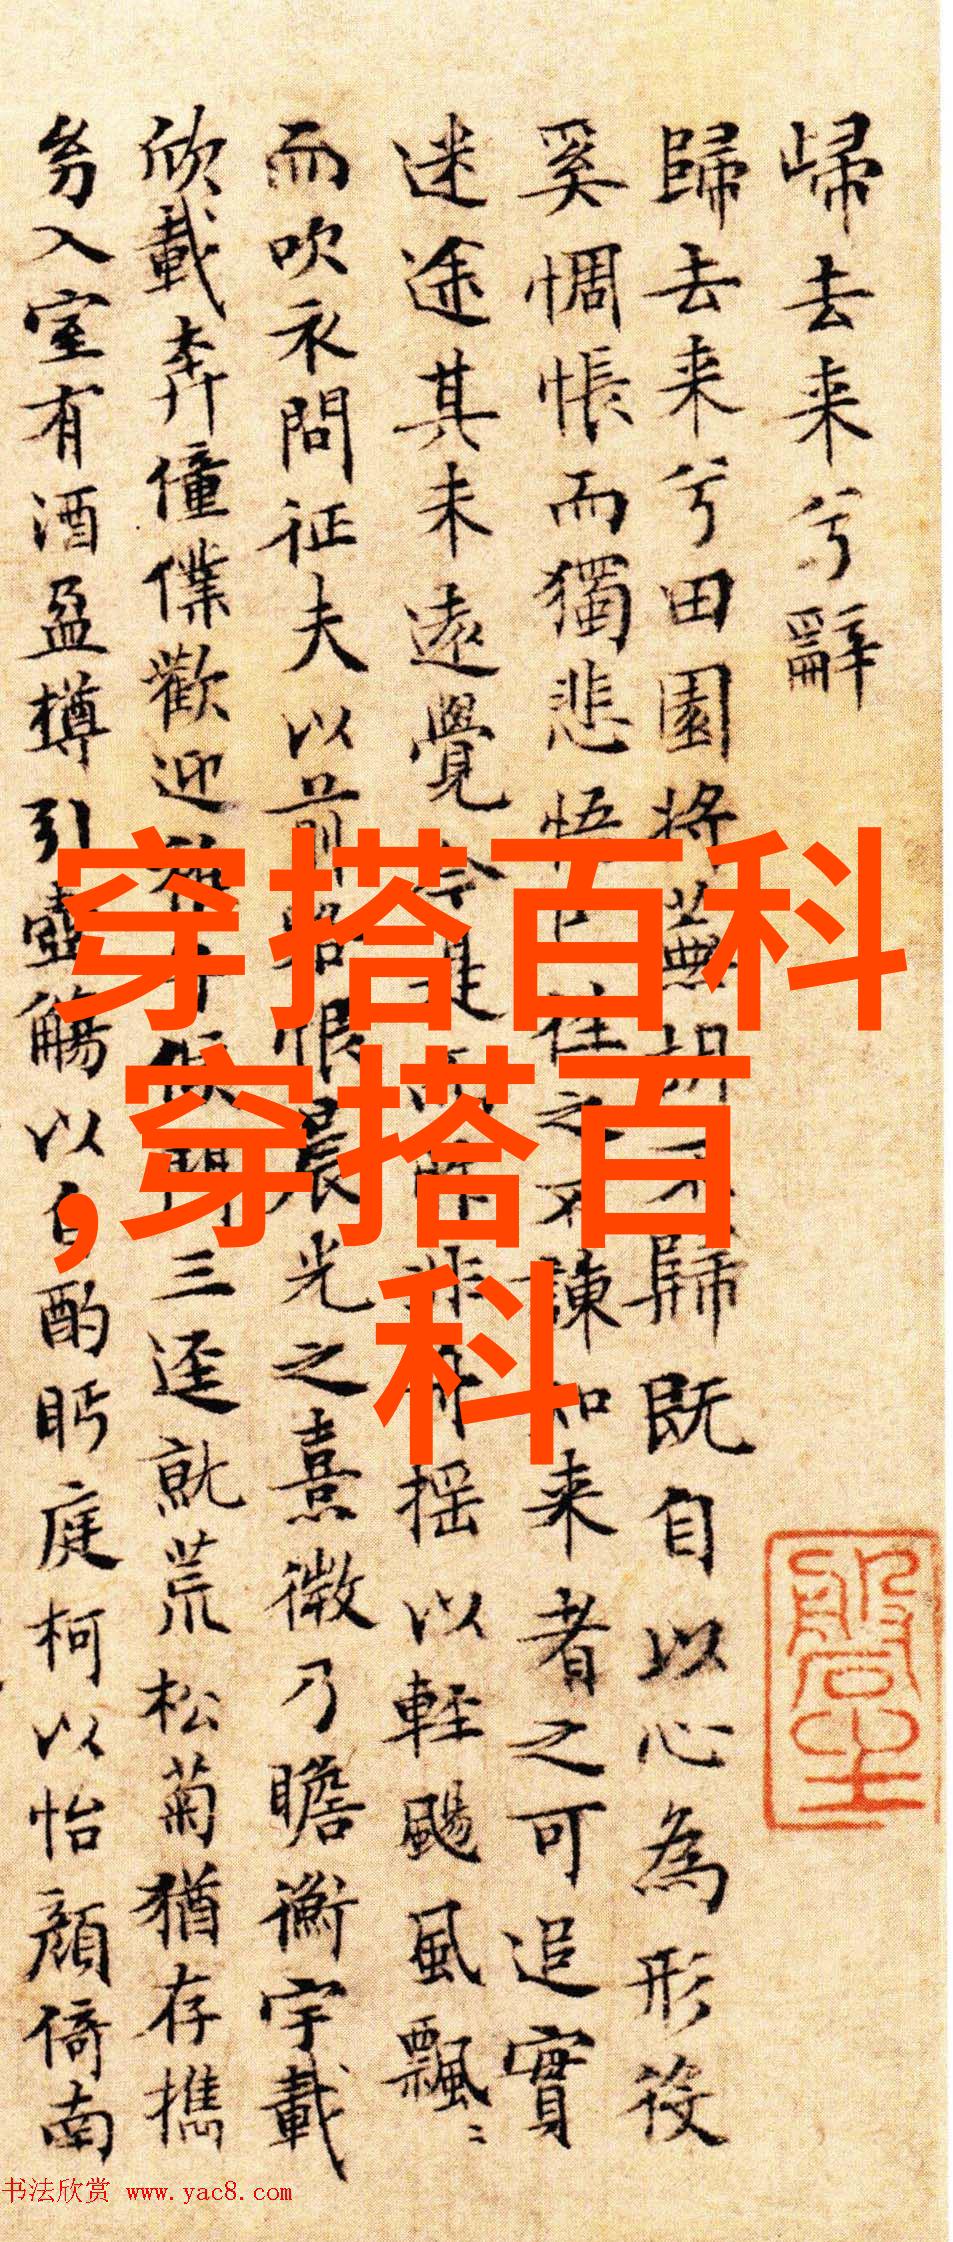 歸去来兮辭
歸去来兮田園將蕪胡不歸既自以心為形役
奚惆悵而獨悲悟已往之不諫知来者之可追實
迷途其未遠覺今是而昨非舟揺以軽颺風飄〻
而吹衣問征夫以前路恨晨光之熹微乃瞻衡宇載
欣載奔僮僕歡迎稚子候門三逕就荒松菊猶存携
㓜入室有酒盈樽引壺觴以自酌眄庭柯以怡顔倚南
穿搭百科
,穿搭百
科
书法欣赏 www.yac8.com